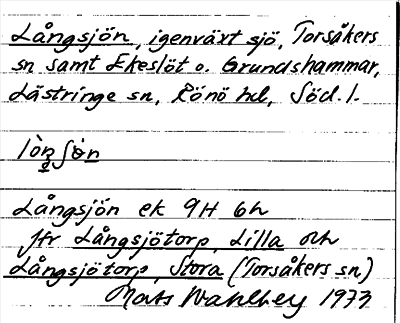 Långsjön, igenväxt sjö, Torsåkers
sn samt Ekeslöt o. Grundshammar,
Lästringe sn, Rönö hd, Söd. l.
Långsjön ek 9H 6h
jfr Långsjötorp, Lilla och
Långsjötorp, Stora (Torsåkers sn)
Mats Wahlberg 1973